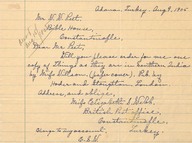 Adana, Turkey. Aug. 9, 1905
Mr. W. W. Peet,
Bible House,
Constantinople.
Dear Mr. Peet:
Will you please order for me one
copy of "Things as they are in Southern India
by Miss Wilson Pub. by
Hodder and Stoughton, London
Address, and oblige,
Miss Elizabeth S. Webb
British Post Office,
Constantinople,
Turkey.
Charge to my account,
E.S.W.